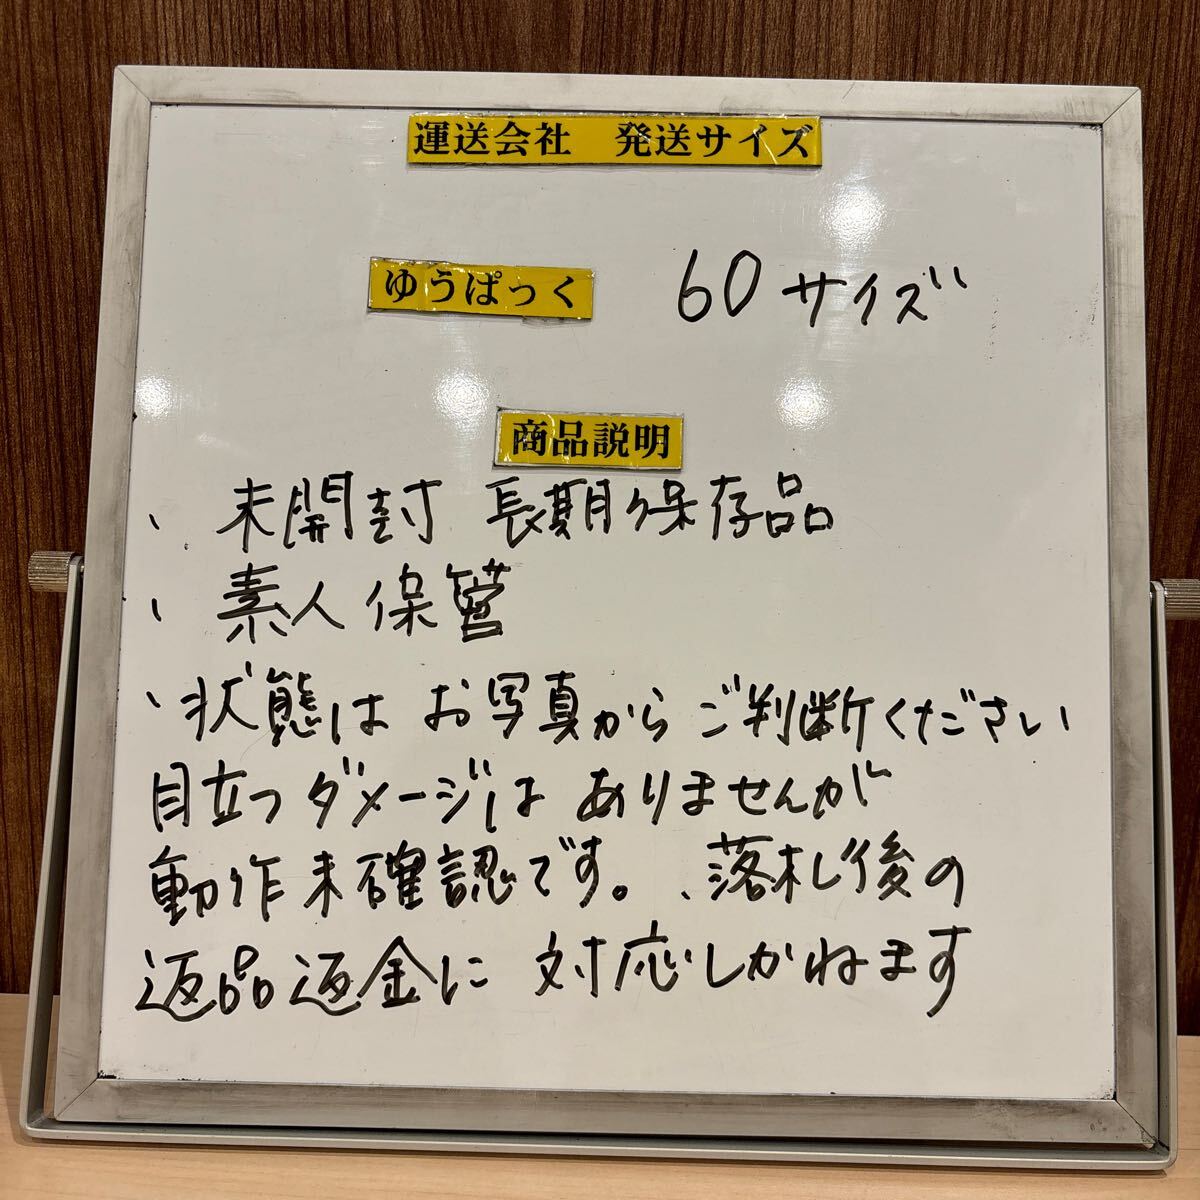 運送会社　発送サイズ
ゆうぱっく 60サイズ
商品説明
、未開封 長期保存品
、素人保管
、状態はお写真からご判断ください
目立つダメージはありませんが
動作未確認です。、落札後の
返品返金に対応しかねます